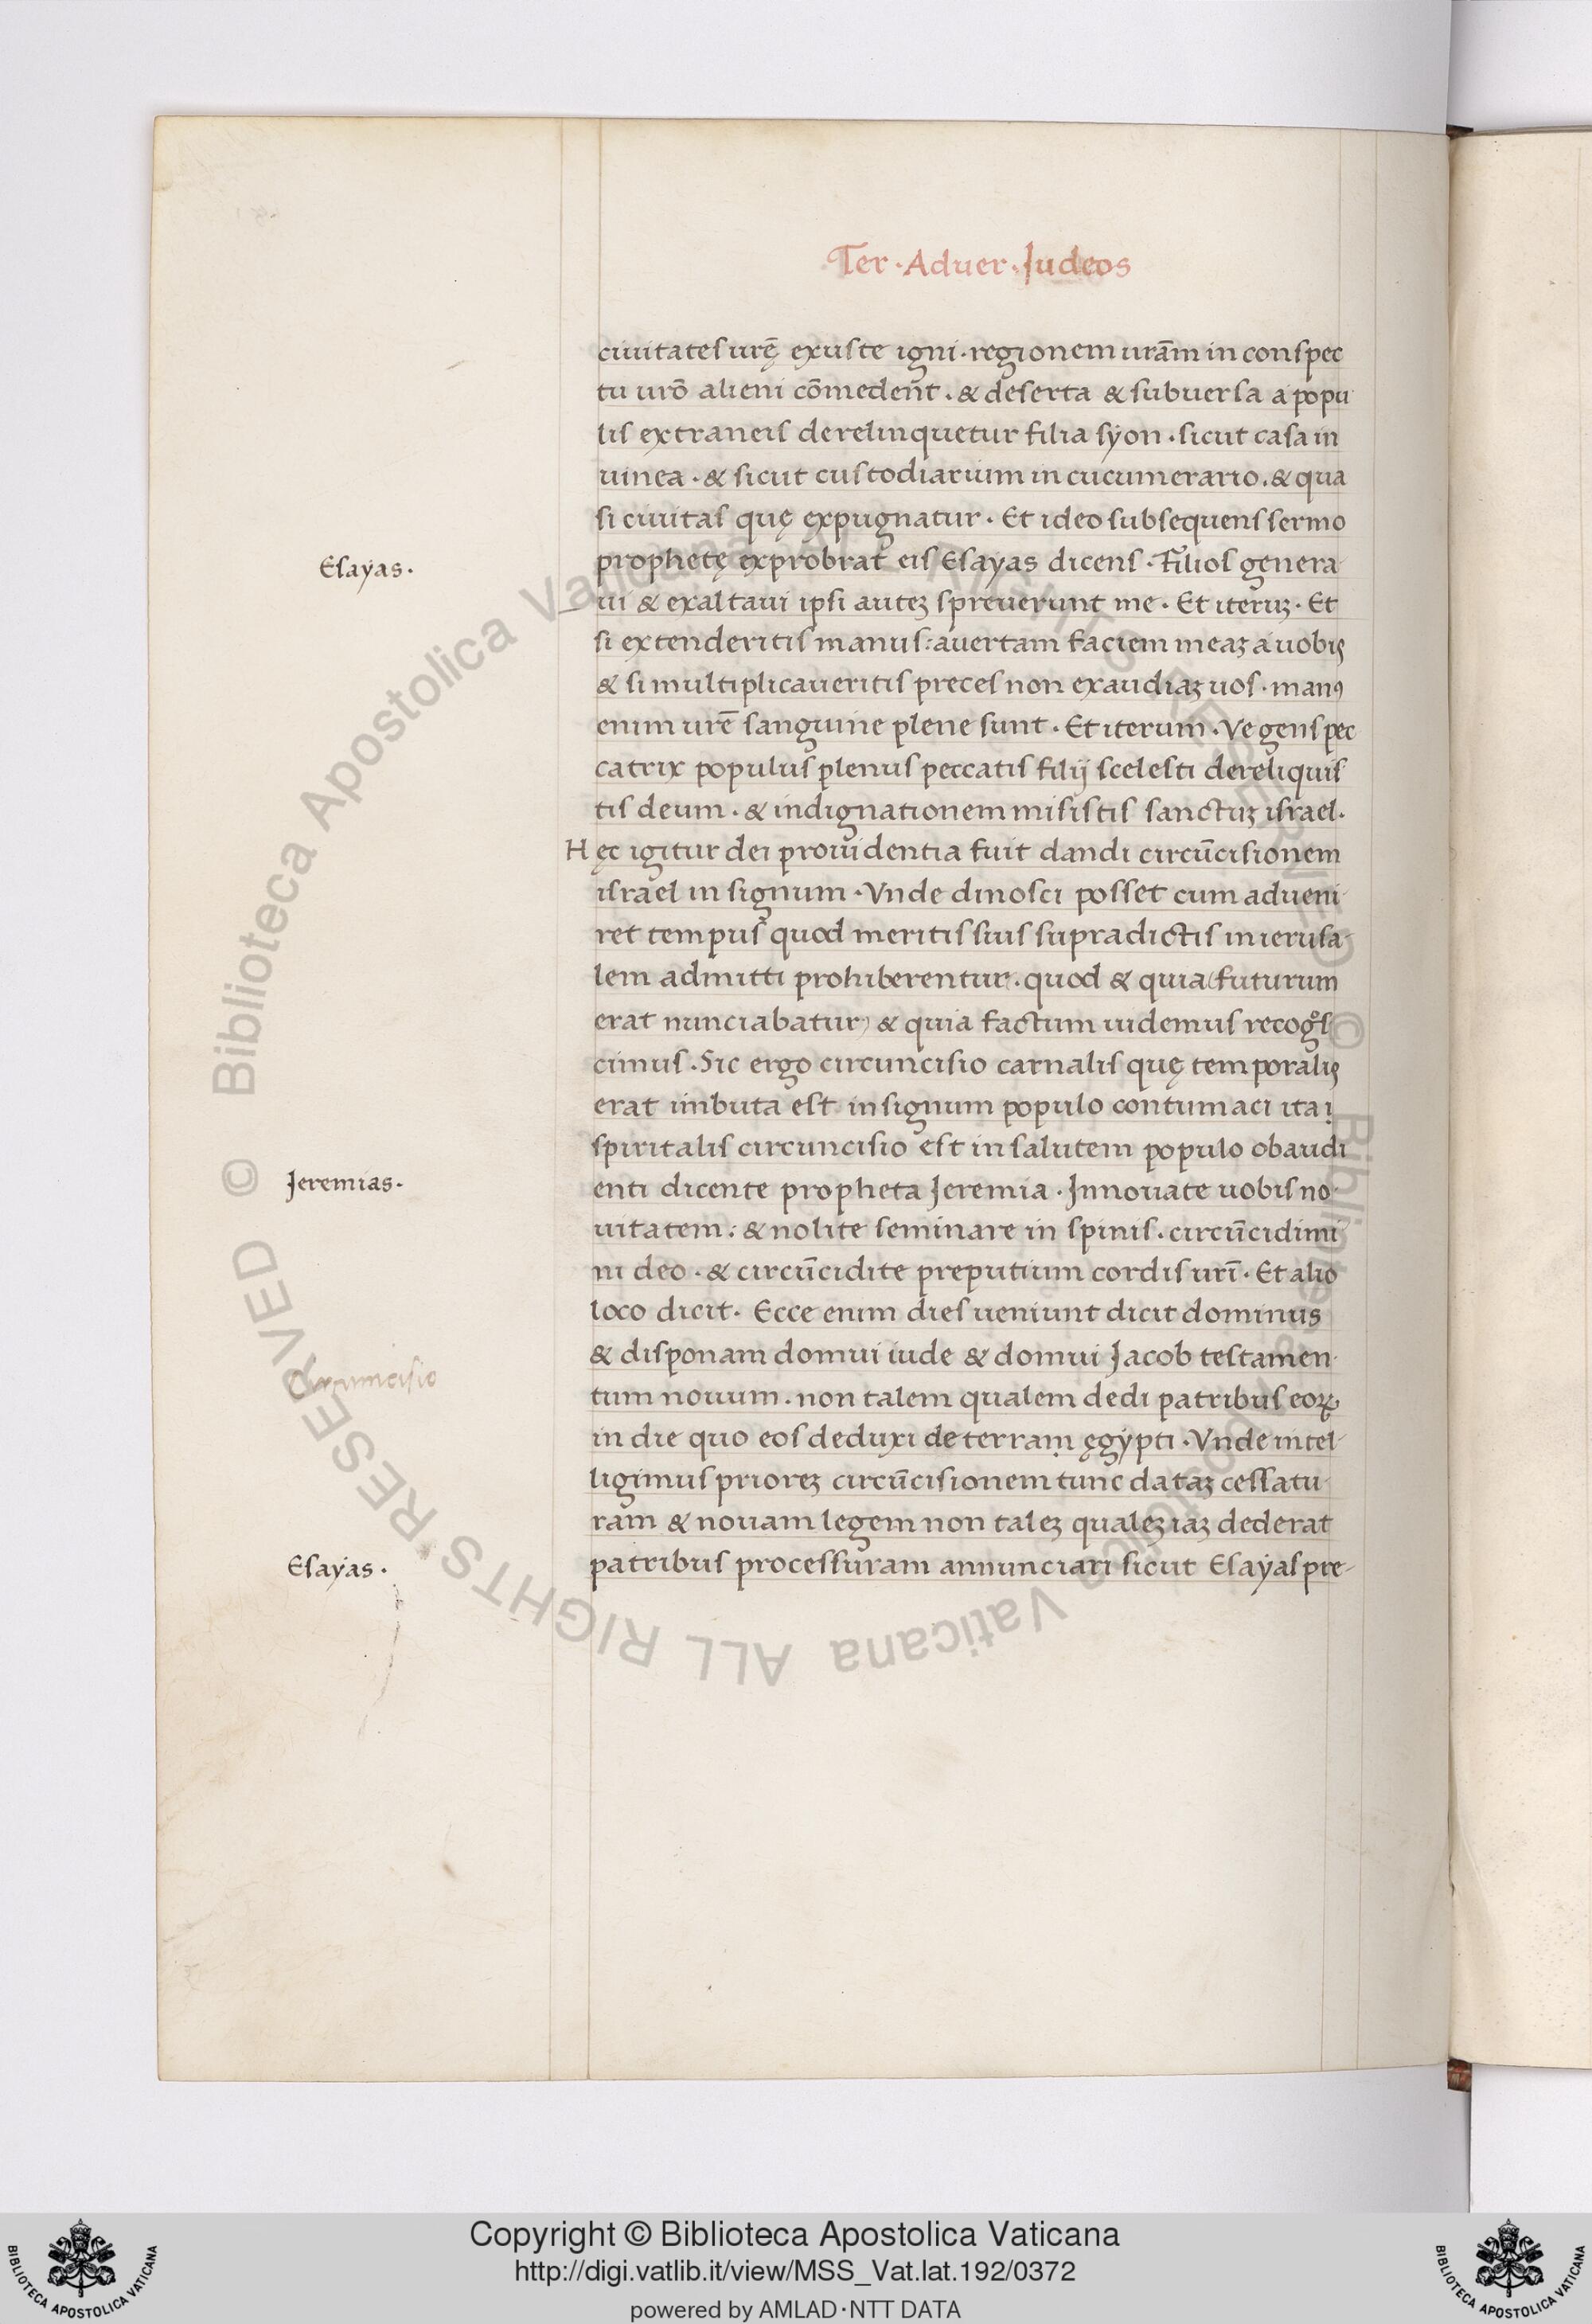 Ter · Aduer · Judeos
ciuitates urę̄ exuste igni · regionem urām in conspec
tu urō alieni cōmedent̄ · & deserta & subuersa a popu
lis extraneis derelinquetur filia syon · sicut casa in
uinea · & sicut custodiarium in cucumerario · & qua
si ciuitas quę expugnatur · Et ideo subsequens sermo
Esayas ·
prophetę exprobrat eis Esayas dicens · Filios genera
ui & exaltaui ipsi auteꝫ spreuerunt me · Et iteruꝫ · Et
si extenderitis manus : auertam faciem meaꝫ a uobis
& si multiplicaueritis preces non exaudiaꝫ uos · manꝰ
enim urē sanguine plene sunt · Et iterum · Ve gens pec
catrix populus plenus peccatis filij scelesti dereliquis
tis deum · & indignationem misistis sanctuꝫ israel ·
Hęc igitur dei prouidentia fuit dandi circūcisionem
israel in signum · Vnde dinosci posset cum adueni
ret tempus quod meritis suis supradictis in ierusa-
lem admitti prohiberentur · quod & quia (futurum
erat nunciabatur) & quia factum uidemus recogͦs
cimus · Sic ergo circuncisio carnalis quę temporalis
erat imbuta est in signum populo contumaci ita ị
spiritalis circuncisio est in salutem populo obaudi
Jeremias ·
enti dicente propheta Jeremia · Innouate uobis no-
uitatem : & nolite seminare in spinis · circūcidimi
ni deo · & circūcidite preputium cordis urī · Et alio
loco dicit · Ecce enim dies ueniunt dicit dominus
& disponam domui iude & domui Jacob testamen-
Circumcisio
tum nouum · non talem qualem dedi patribus eoꝝ
in die quo eos deduxi de terraṃ ęgypti · Vnde intel-
ligimus prioreꝫ circūcisionem tunc dataꝫ cessatu-
ram & nouam legem non taleꝫ qualeꝫ iaꝫ dederat
Esayas ·
patribus processuram annunciari sicut Esayas pre-
© Biblioteca Apostolica Vaticana ALL RIGHTS RESERVED
© Biblioteca Apostolica Vaticana ALL RIGHTS RESERVED
BIBLIOTECA APOSTOLICA VATICANA
Copyright © Biblioteca Apostolica Vaticana
http://digi.vatlib.it/view/MSS_Vat.lat.192/0372
powered by AMLAD·NTT DATA
BIBLIOTECA APOSTOLICA VATICANA